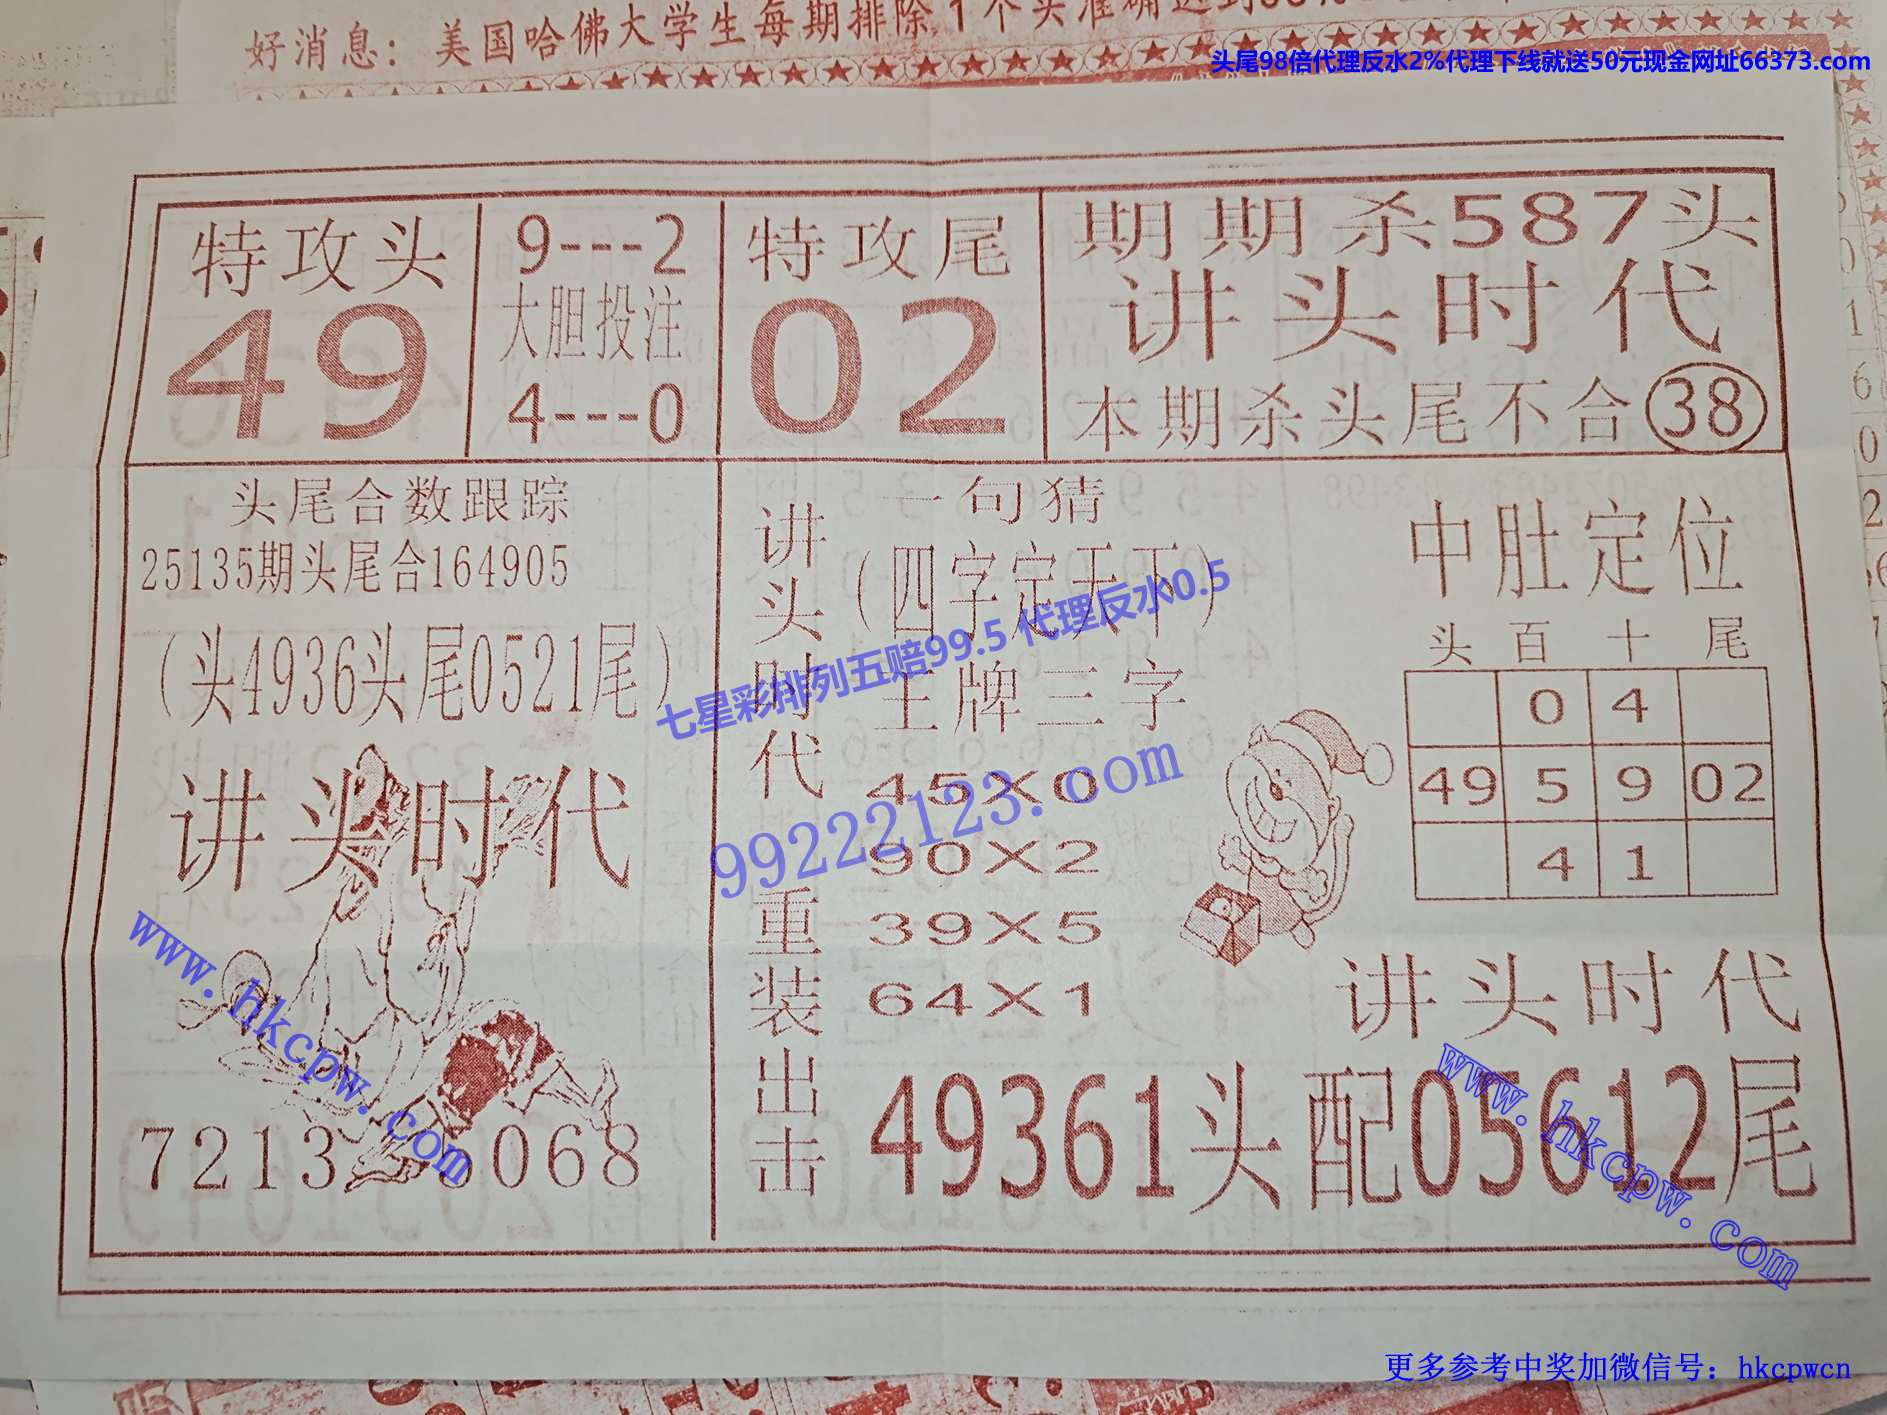 好消息：美国哈佛大学生每期排除1个头准确达到
头尾98倍代理反水2%代理下线就送50元现金网址66373.com
特攻头
49
9---2
大胆投注
4---0
特攻尾
02
期期杀587头
讲头时代
本期杀头尾不合38
头尾合数跟踪
25135期头尾合164905
(头4936头尾0521尾)
讲头时代
7213
068
讲头时代重装出击
一句猜
(四字定天下)
王牌三字
45X0
90X2
39X5
64X1
七星彩排列五赔99.5 代理反水0.5
99222123.com
中肚定位
头 百 十 尾
0 4
49 5 9 02
4 1
讲头时代
49361头配05612尾
www.hkcpw.com
www.hkcpw.com
更多参考中奖加微信号：hkcpwcn